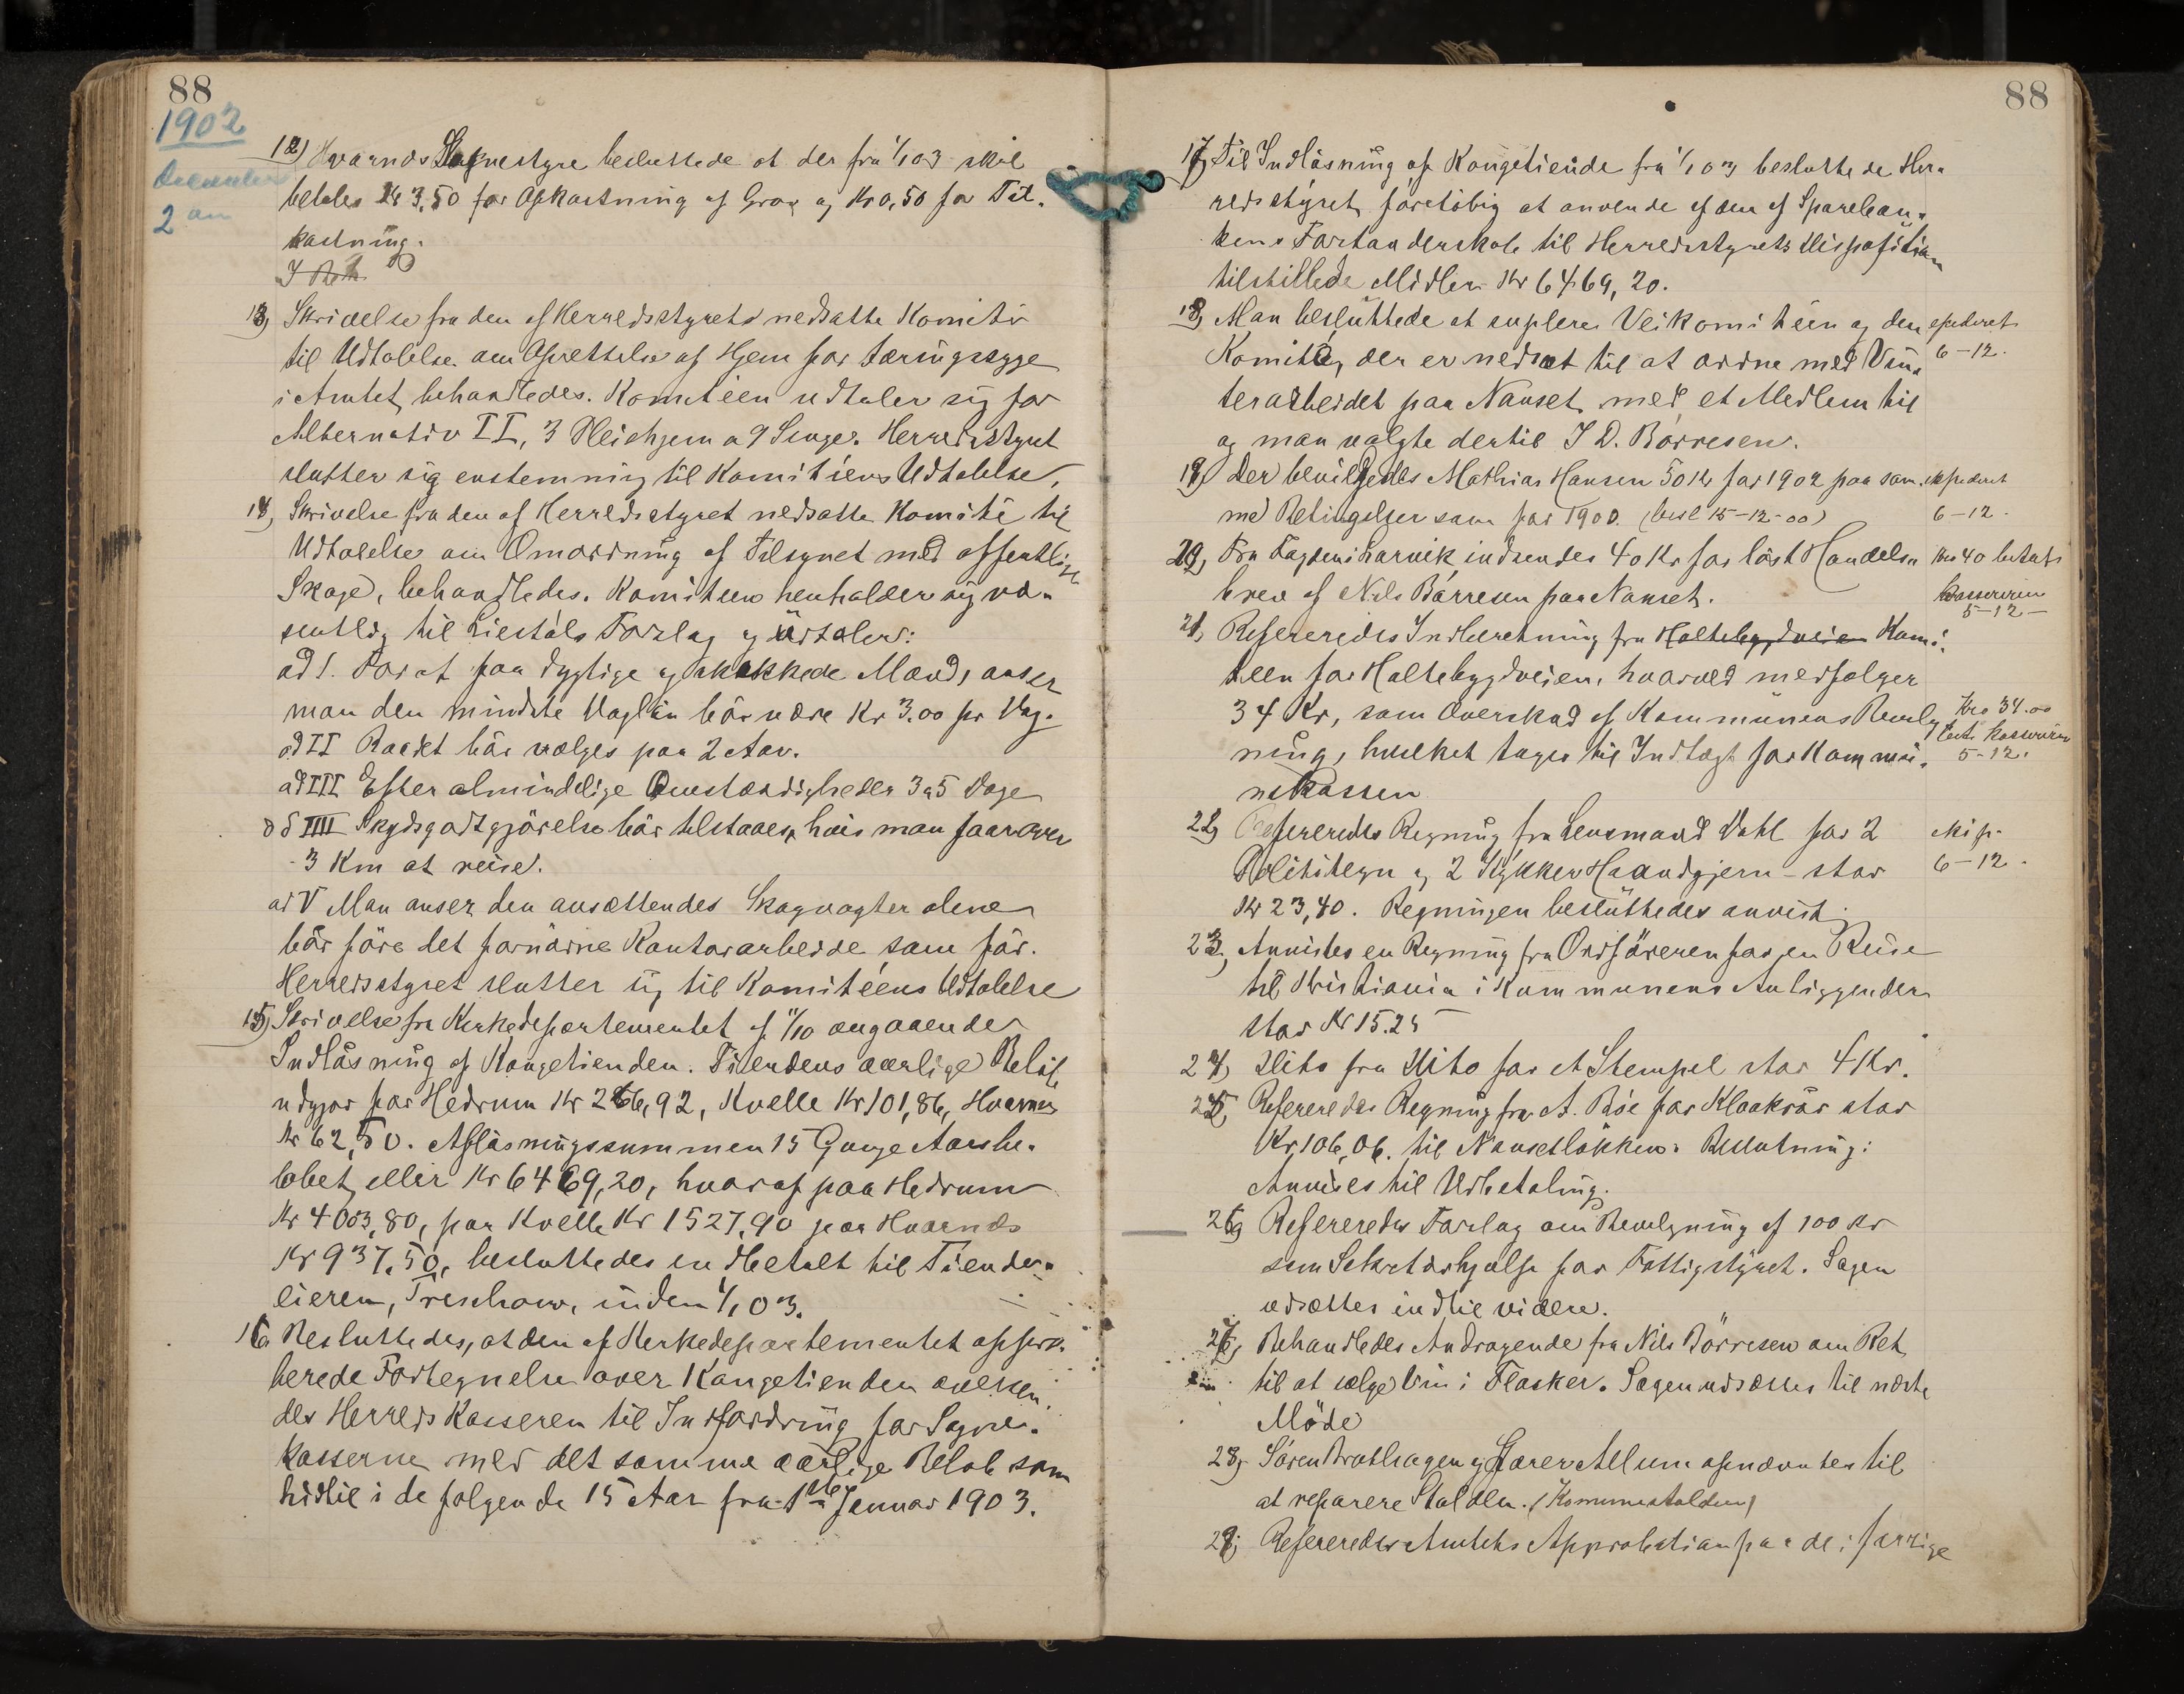 88
1902
December
2 an
12) Hvarnes Sognestyre besluttede at der fra 1/1 03 skal
betales Kr 3,50 for Opkastning af Grav og Kr 0,50 for Til-
kastning.
13) Skrivelse fra den af Herredsstyrets nedsatte Komite
til Udtalelse om Oprettelse af Hjem for tæringssyge
i Amtet, behandledes. Komiteen udtaler sig for
Alternativ II, 3 Pleiehjem a 9 Senger. Herredsstyret
slutter sig enstemmig til Komiteens Udtalelse.
14) Skrivelse fra den af Herredsstyret nedsatte Komité til
Udtalelse om Omordning af Tilsynet med offentlige
Skoge, behandledes. Komiteen henholder sig væ-
sentlig til Liestøls Forlag og udtaler:
ad I. For at faa dygtige og skikkede Mænd, anser
man den mindste Dagløn bør være Kr 3.00 pr Dag.
ad II Raadet bør vælges paa 2 Aar.
ad III Efter almindelige Omstændigheder 3 a 5 Dage
ad IIII Skydsgodtgjørelse bør tilstaaes, hvis man faar over
3 Km at reise.
ad V Man anser den ansættendes Skogvogter alene
bør føre det fornødne Kontorarbeide som før.
Herredsstyret slutter sig til Komitéens Udtalelse
15) Skrivelse fra Kirkedepartementet af 11/10 angaaende
Indløsning af Kongetienden. Tiendens aarlige Beløb
udgjør for Hedrum Kr 266,92, Kvelle Kr 101,86, Hvarnes
Kr 62,50. Afløsningssummen 15 Gange Aarsbe-
løbet, eller Kr 6469,20, hvoraf paa Hedrum
Kr 4003,80, paa Kvelle Kr 1527,90 paa Hvarnes
Kr 937,50, besluttedes indbetalt til Tiender-
eieren, Treschow, inden 1/1 03.
16 Besluttedes, at den af Kirkedepartementet appro-
berede Fortegnelse over Kongetienden oversen-
des Herredskasseren til Indfordring for Sogne-
kasserne med det samme aarlige Beløb som
hidtil i de følgende 15 Aar fra 1ste Januar 1903.
88
17) Til Indløsning af Kongetiende fra 1/1 03 besluttede Her-
redsstyret foreløbig at anvende af den af Spareban-
kens Forstanderskab til Herredsstyrets Disposition
tilstillede Midler Kr 6469,20.
18) Man besluttede at suplere Veikomiteen og den
Komite, der er nedsat til at ordne med Vin-
terarbeidet paa Nanset, med et Medlem til
og man valgte dertil J D. Børresen.
expederet
6-12.
19) Der bevilgedes Mathias Hansen 50 Kr for 1902 paa sam-
me Betingelser som for 1900. (besl 15-12-00)
expederet
6-12.
20) Fra Fogden i Larvik indsendes 40 Kr for løst Handels-
brev af Nils Børresen paa Nanset.
Kr 40 betalt
kassereren
5-12-
21) Refereredes Indberetning fra Holtebygdveien Komi-
teen for Holtebygdveien, hvorved medfølger
34 Kr, som Overskud af Kommunens Bevilg
ning, hvilket tages til Indtægt for Kommu-
nekassen
Kro 34.00
bet. kassereren
5-12.
22) Refereredes Regning fra Lensmand Dahl for 2
Politítegn og 2 Stykker Haandjern - stor
Kr 23,40. Regningen besluttedes anvist.
exp.
6-12.
23) Anvistes en Regning fra Ordføreren for en Reise
til Kristiania i Kommunens Anliggender
stor Kr 15.25
24) Dito fra Dito for et Stempel stor 4 Kr.
25) Refereredes Regning fra A. Bøe for Kloakrør stor
Kr 106,06. til Nansetløkken. Beslutning:
Anvises til Udbetaling.
26) Refereredes Forlag om Bevilgning af 100 Kr
som Sekretærhjælp for Fattigstyret. Sagen
udsættes indtil videre.
27) Behandledes Andragende fra Nils Børresen om Ret
til at sælge Vin i Flasker. Sagen udsættes til næste
Møde
28) Søren Brathagen og Lærer Allum opnævntes til
at reparere Stalden. (Kommunestalden)
29) Refereredes Amtets Approbation paa de i forrige